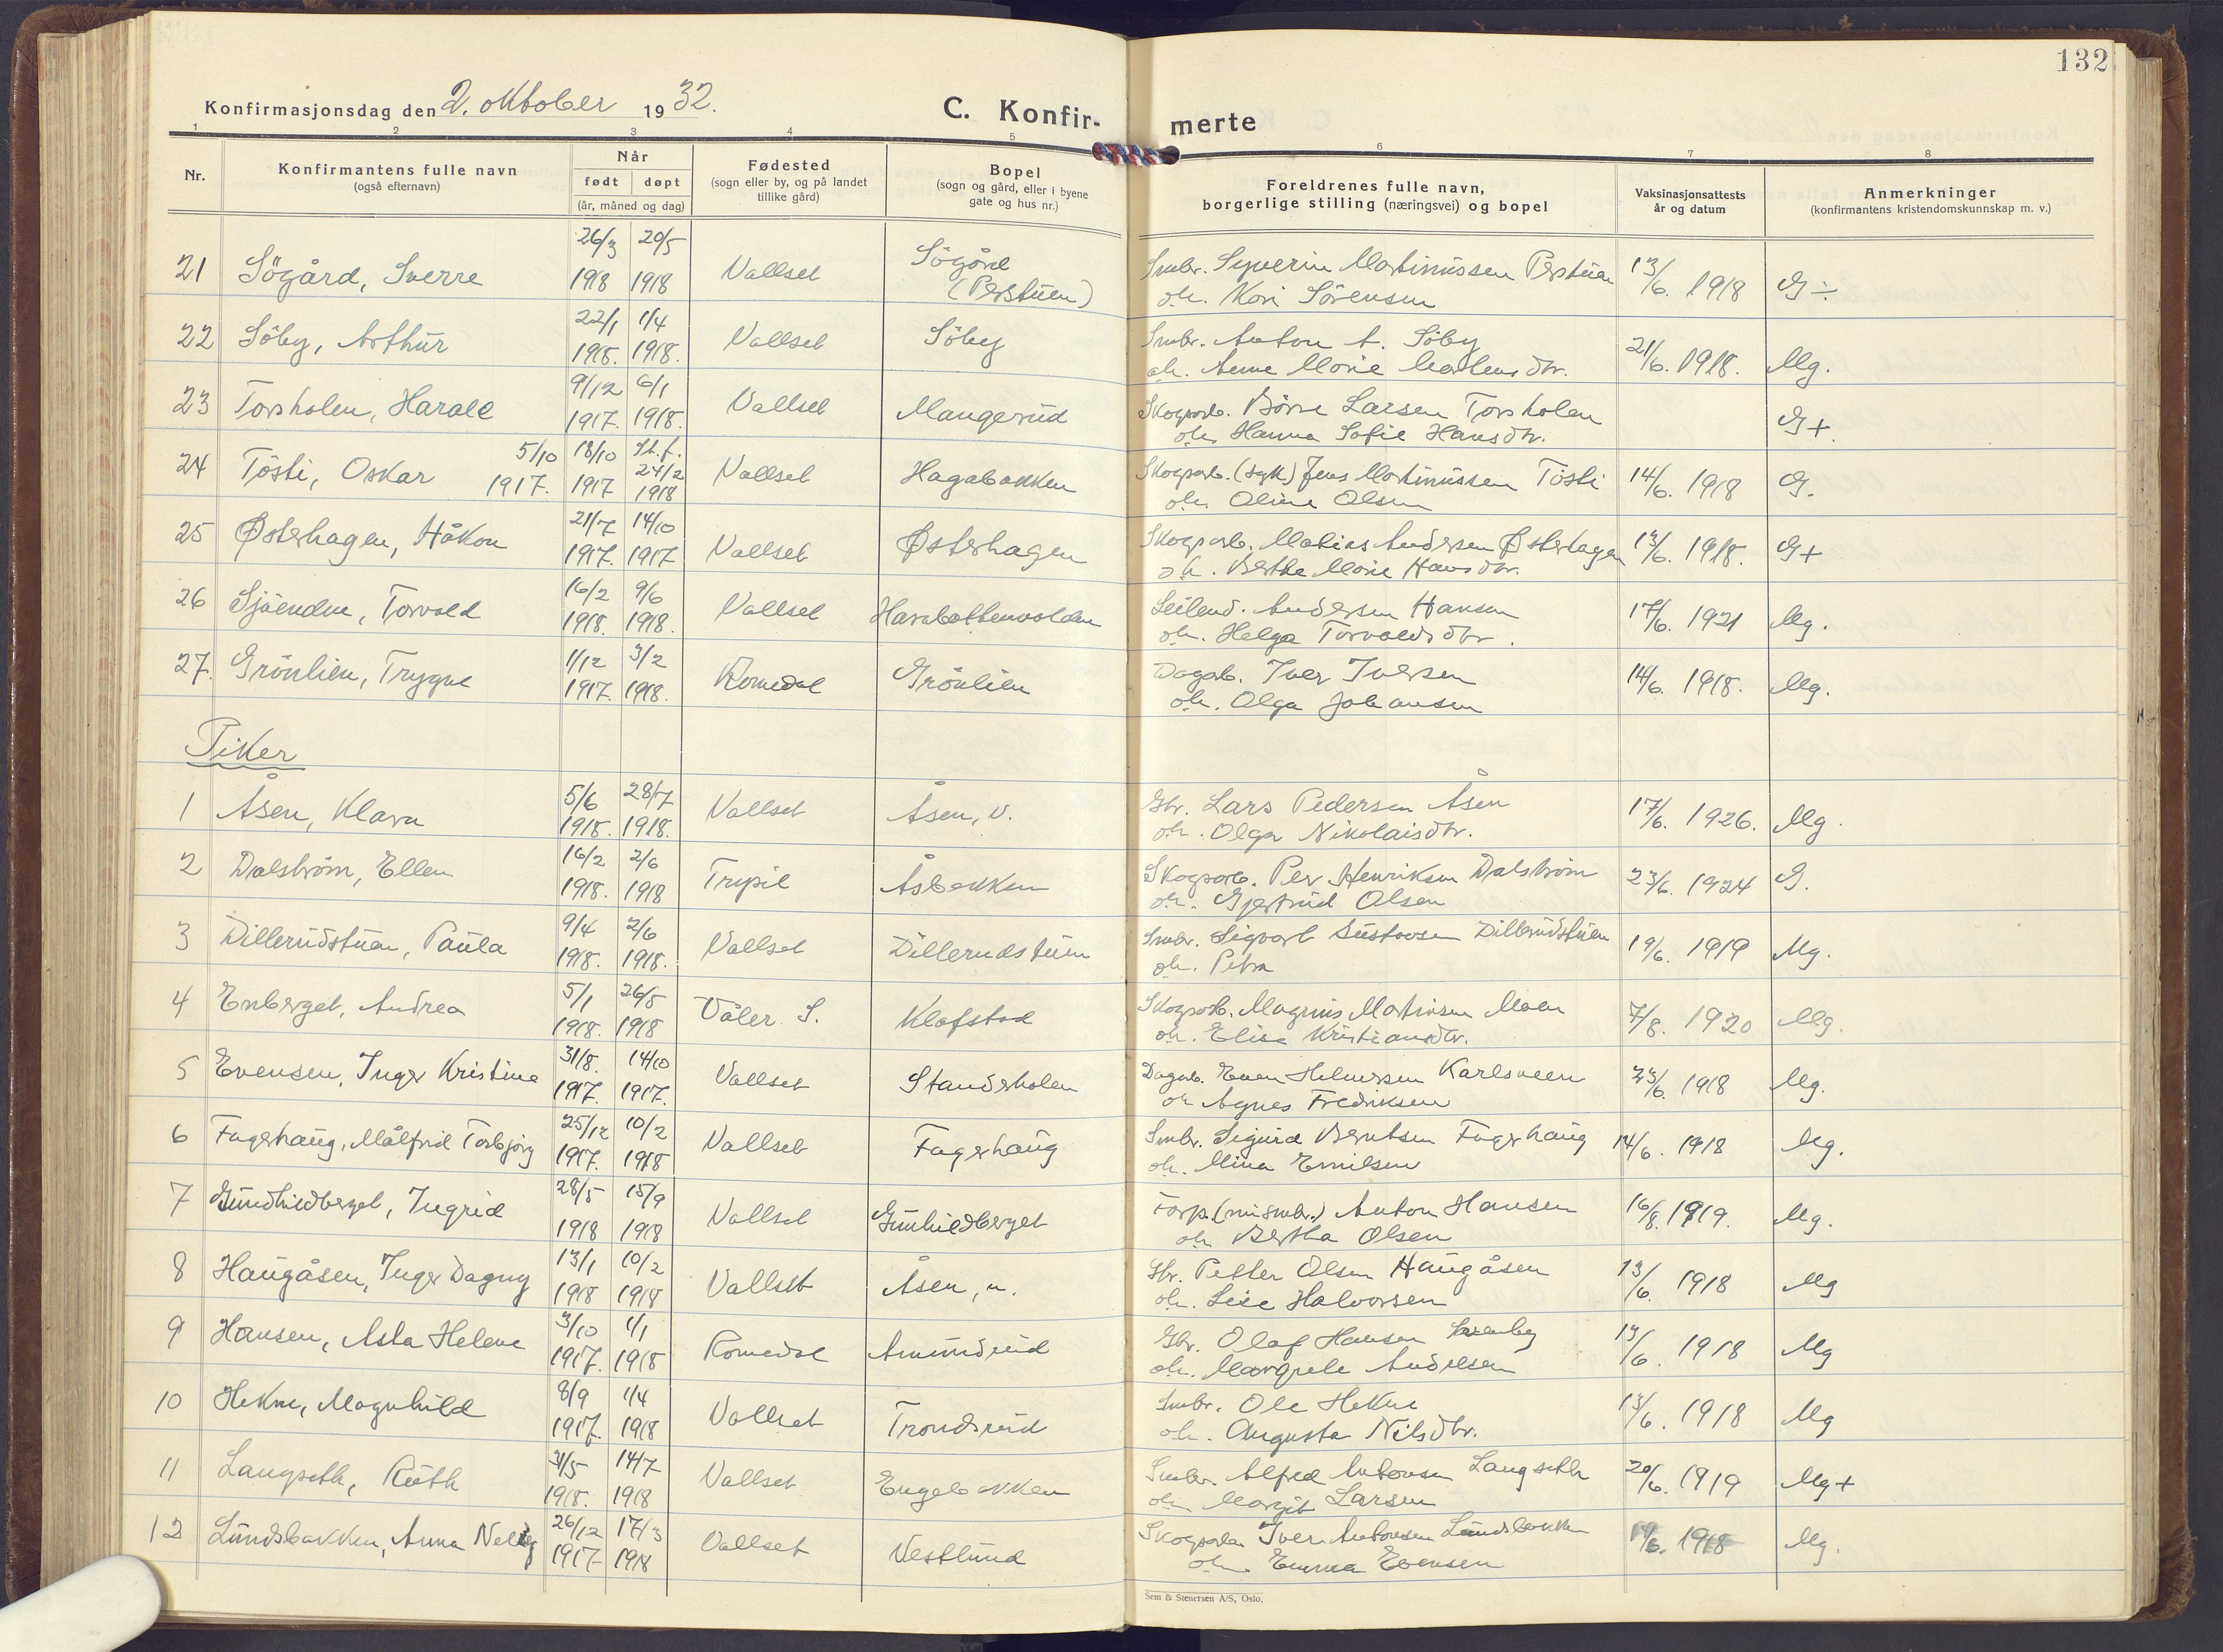 132
Konfirmasjonsdag den 2. oktober 1932.
C. Konfir-
merte
1 2 3 4 5 6 7 8
Nr.
Konfirmantens fulle navn
(også efternavn)
Når
født døpt
(år, måned og dag)
Fødested
(sogn eller by, og på landet
tillike gård)
Bopel
(sogn og gård, eller i byene
gate og hus nr.)
Foreldrenes fulle navn,
borgerlige stilling (næringsvei) og bopel
Vaksinasjonsattests
år og datum
Anmerkninger
(konfirmantens kristendomskunnskap m. v.)
26/3 20/5
21 Sögård, Sverre 1918 1918 Vallset Sögård
(Perstuen)
Smbr. Syverin Martinussen Perstuen 13/6. 1918 G÷
oh. Kari Sörensen
22/1 1/4
22 Söby, Arthur 1918. 1918. Vallset Söby
Smbr. Anton A. Söby 21/6. 1918. Mg.
oh. Anne Marie Martensdtr.
9/12 6/1
23 Torsholen, Harald 1917. 1918. Vallset Mangerud
Skogsarb. Börre Larsen Torsholen G+.
oh. Hanna Sofie Hansdtr.
5/10 18/10 St.f. 24/2
24 Tösti, Oskar 1917. 1917 1918 Vallset Hagabakken
Skogsarb. (syk) Jens Martinussen Tösti 14/6. 1918 G.
oh. Oline Olsen
21/7 14/10
25 Østerhagen, Håkon 1917. 1917 Vallset Østerhagen
Skogsarb. Matias Andersen Østerhagen 13/6. 1918. G+
oh. Berthe Marie Hansdtr.
16/2 9/6
26 Sjöenden, Torvald 1918. 1918. Vallset Harabattenvolden
Leilend. Andersen Hansen 17/6. 1921 Mg.
oh. Helga Torvaldsdtr.
1/12 3/2
27. Grönlien, Trygve 1917. 1918. Romedal Grönlien
Dagarb. Iver Iversen 14/6. 1918. Mg.
oh. Olga Johansen
Piker
5/6 28/7
1 Åsen, Klara 1918. 1918. Vallset Åsen, v.
Gbr. Lars Pedersen Åsen 17/6. 1926. Mg.
oh. Olga Nikolaisdtr.
16/2 2/6
2 Dalström, Ellen 1918. 1918 Trysil Åsbakken
Skogsarb. Per Henriksen Dalström 23/6. 1924 G.
oh. Gjertrud Olsen
9/4 2/6
3 Dillerudstuen, Paula 1918. 1918. Vallset Dillerudstuen
Smbr. Sigvart Gustavsen Dillerudstuen 19/6. 1919 Mg.
oh. Petra
5/1 26/5
4 Enberget, Andrea 1918. 1918 Våler S. Klafstad
Skogsarb. Magnus Martinsen Moen 7/8. 1920 Mg.
oh. Elise Kristiansdtr.
31/8. 14/10
5 Evensen, Inger Kristine 1917. 1917. Vallset Standerholen
Dagarb. Even Helmersen Karlsveen 23/6. 1918 Mg.
oh Agnes Fredriksen
25/12 10/2
6 Fagerhaug, Målfrid Torbjörg 1917. 1918 Vallset Fagerhaug
Smbr. Sigurd Berntsen Fagerhaug 14/6. 1918 Mg.
oh. Mina Emilsen
28/5 15/9
7 Gundhildberget, Ingrid 1918 1918 Vallset Gunhildberget
Forp. (nu smbr.) Anton Hansen 16/8. 1919. Mg.
oh Bertha Olsen
13/1 10/2
8 Haugåsen, Inger Dagny 1918 1918 Vallset Åsen, n.
Gbr. Petter Olsen Haugåsen 13/6. 1918 Mg
oh. Lise Halvorsen
3/10 1/1
9 Hansen, Asta Helene 1917. 1918 Romedal Amundrud
Gbr. Olaf Hansen 13/6. 1918 Mg
oh. Margrete Andersen
8/9 1/4
10 Hekne, Magnhild 1917. 1918 Vallset Trondsrud
Smbr. Ole Hekne 13/6. 1918 Mg
oh. Augusta Nilsdtr.
31/5 14/7
11 Langseth, Ruth 1918. 1918 Vallset Engebakken
Smbr. Alfred Antonsen Langseth 20/6. 1919 Mg+
oh Margit Larsen
26/12 17/3
12 Lundsbakken, Anna Nelly 1917 1918 Vallset Vestlund
Skogsarb. Iver Antonsen Lundsbakken 1918 Mg.
oh. Emma Evensen
Sem & Stenersen A/S, Oslo.